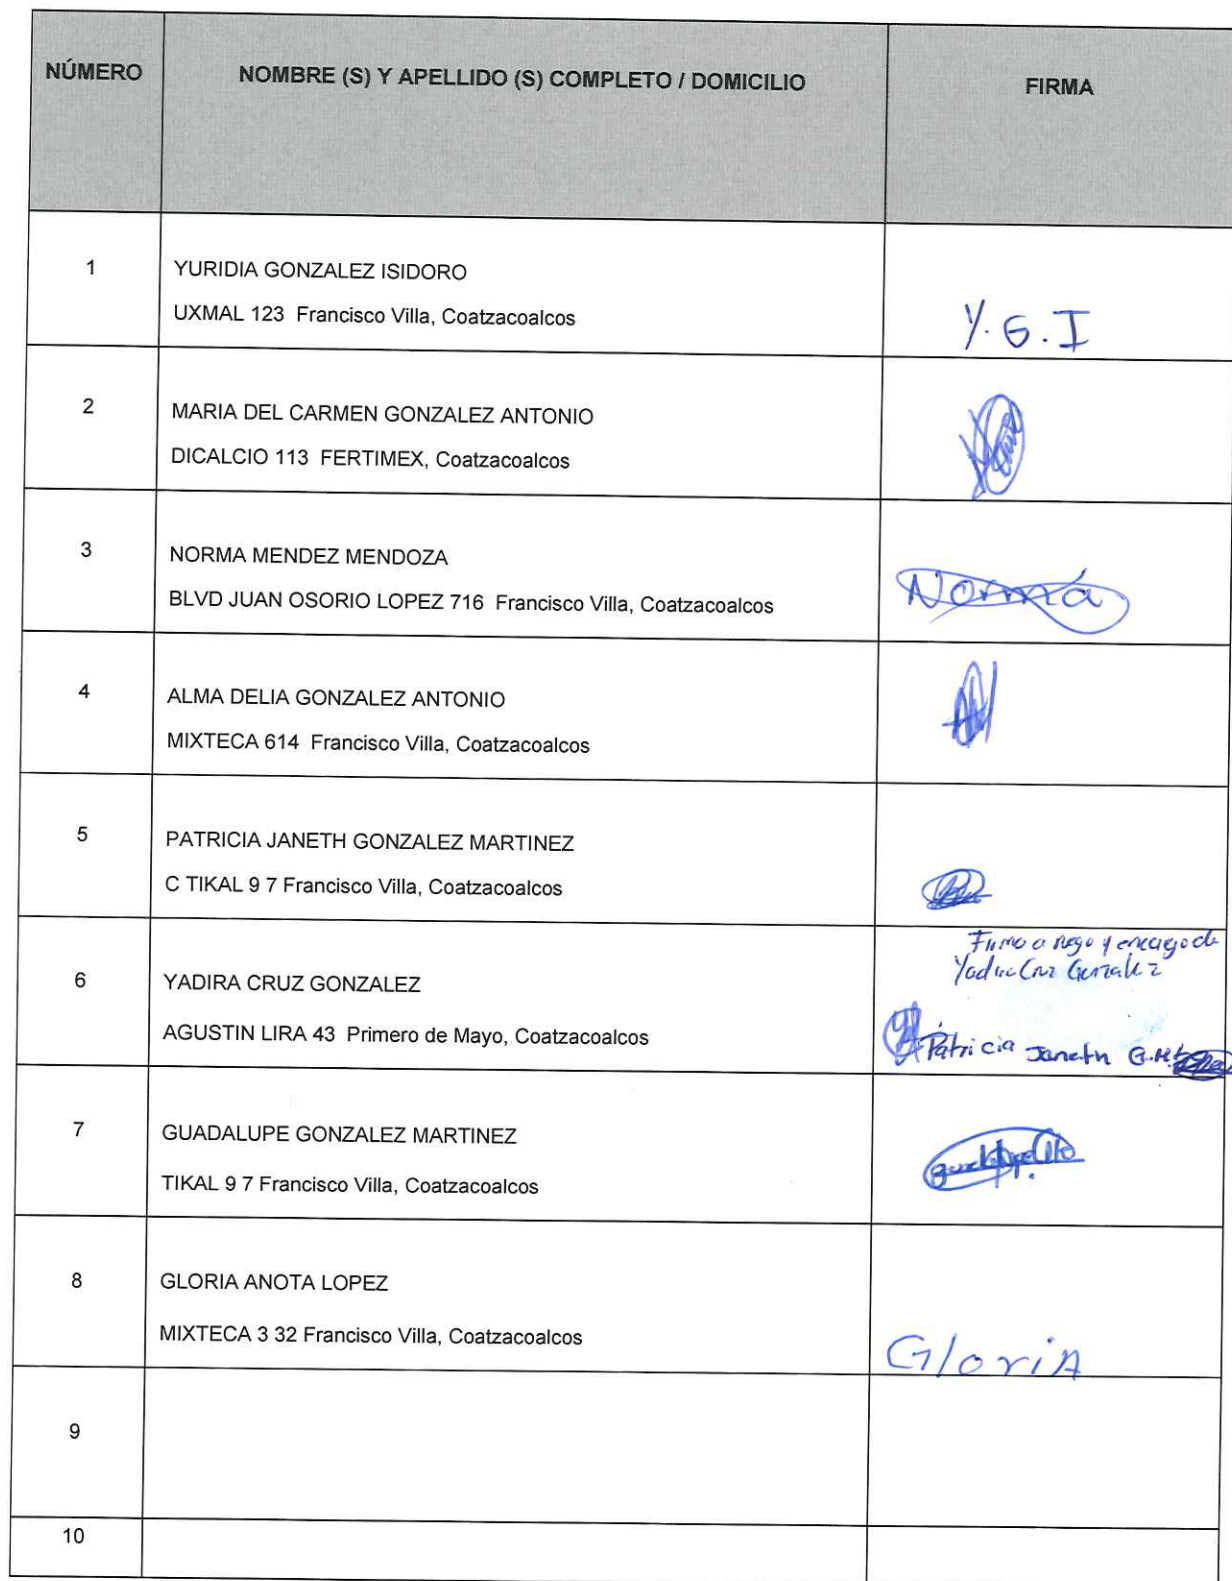 NÚMERO NOMBRE (S) Y APELLIDO (S) COMPLETO / DOMICILIO FIRMA
1 YURIDIA GONZALEZ ISIDORO
UXMAL 123 Francisco Villa, Coatzacoalcos
Y. G. I
2 MARIA DEL CARMEN GONZALEZ ANTONIO
DICALCIO 113 FERTIMEX, Coatzacoalcos
3 NORMA MENDEZ MENDOZA
BLVD JUAN OSORIO LOPEZ 716 Francisco Villa, Coatzacoalcos
Norma
4 ALMA DELIA GONZALEZ ANTONIO
MIXTECA 614 Francisco Villa, Coatzacoalcos
5 PATRICIA JANETH GONZALEZ MARTINEZ
C TIKAL 9 7 Francisco Villa, Coatzacoalcos
Firmo a ruego y encargo de
Yadira Cruz Gonzalez
6 YADIRA CRUZ GONZALEZ
AGUSTIN LIRA 43 Primero de Mayo, Coatzacoalcos
Patricia Janeth G.M.
7 GUADALUPE GONZALEZ MARTINEZ
TIKAL 9 7 Francisco Villa, Coatzacoalcos
8 GLORIA ANOTA LOPEZ
MIXTECA 3 32 Francisco Villa, Coatzacoalcos
GloriA
9
10